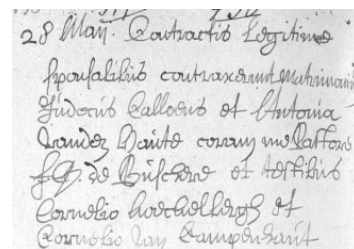 28 Maii. Contractis Legitime
sponsalibus contraxerunt matrimoni
Judocus Callocus et Antonia
Vanden Haute coram me Pastore
de Buschere et testibus
Cornelio hoechelbergh et
Cornelio Van Campenhaut